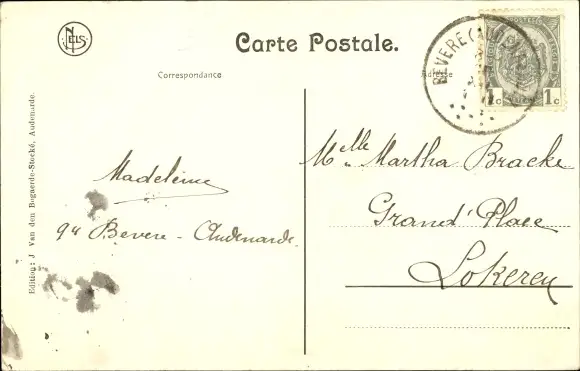 NELS
Carte Postale.
Correspondance.
Adresse
BEVERE (AUD
1c 1c
Edition: J. Van den Bogaerde-Stocké, Audenarde.
Madeleine
94 Bevere - Audenarde.
Melle Martha Bracke
Grand' Place
Lokeren